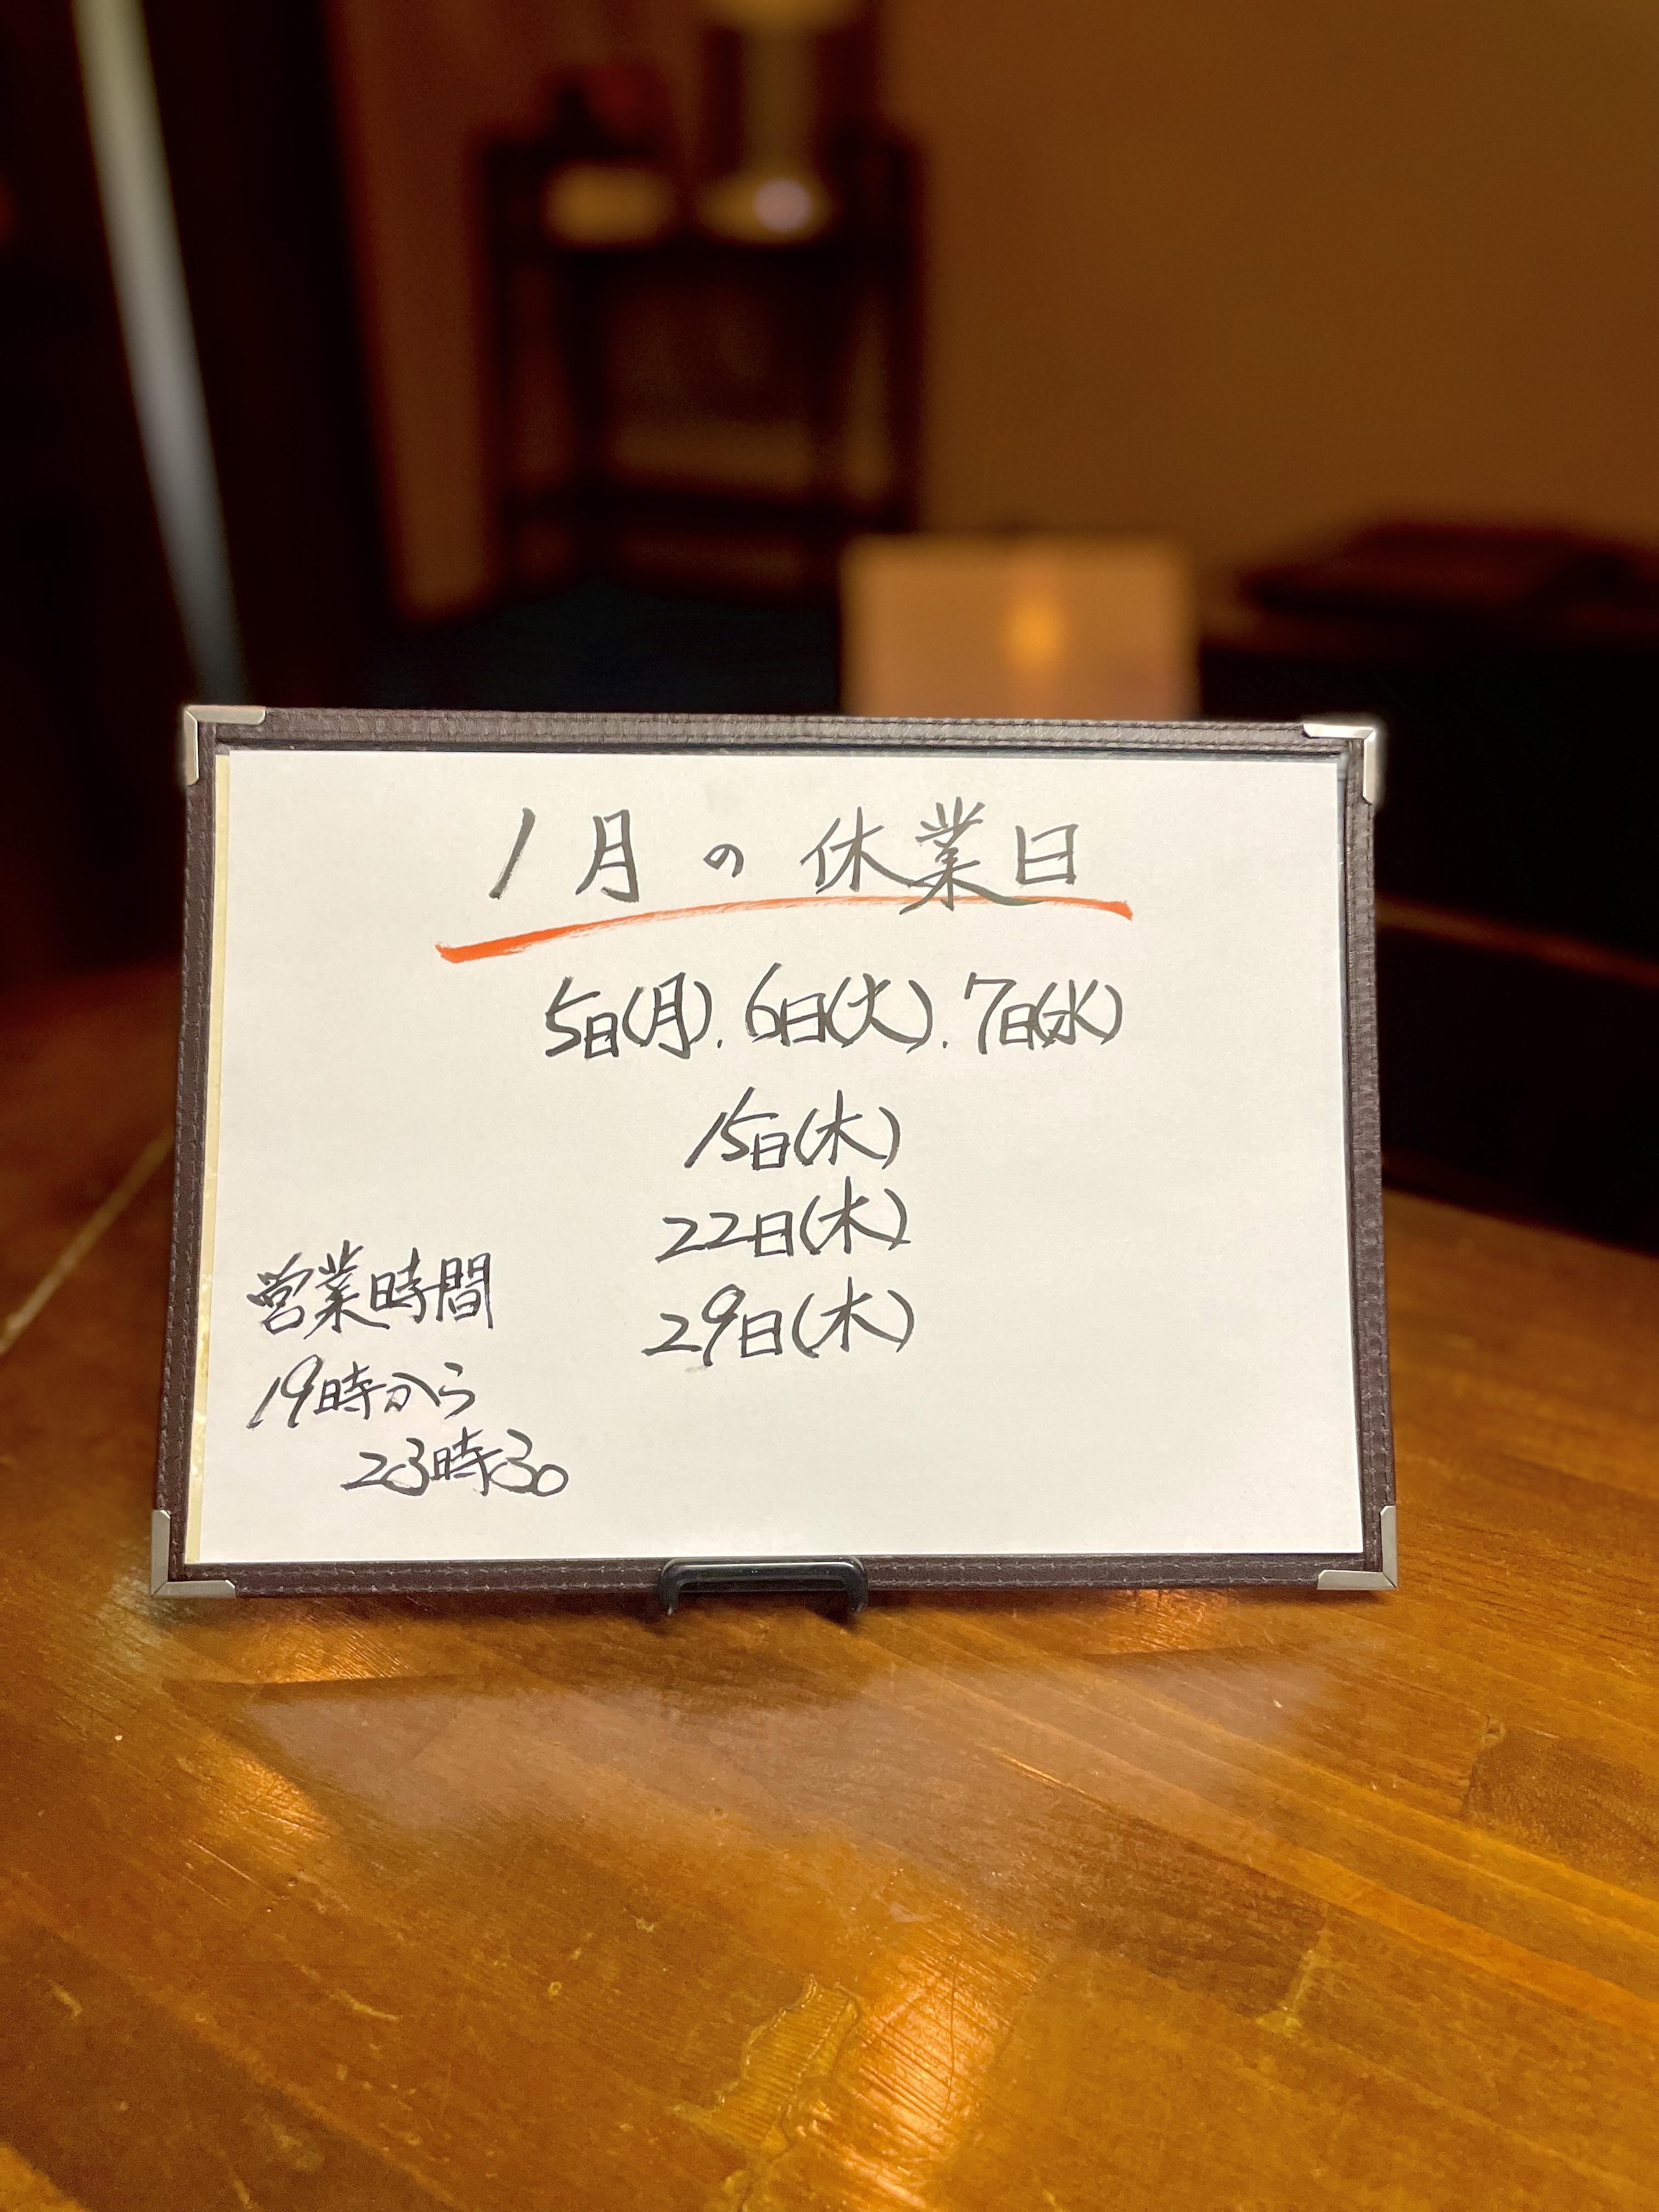 1月の休業日
5日(月).6日(火).7日(水)
15日(木)
22日(木)
29日(木)
営業時間
19時から
23時30